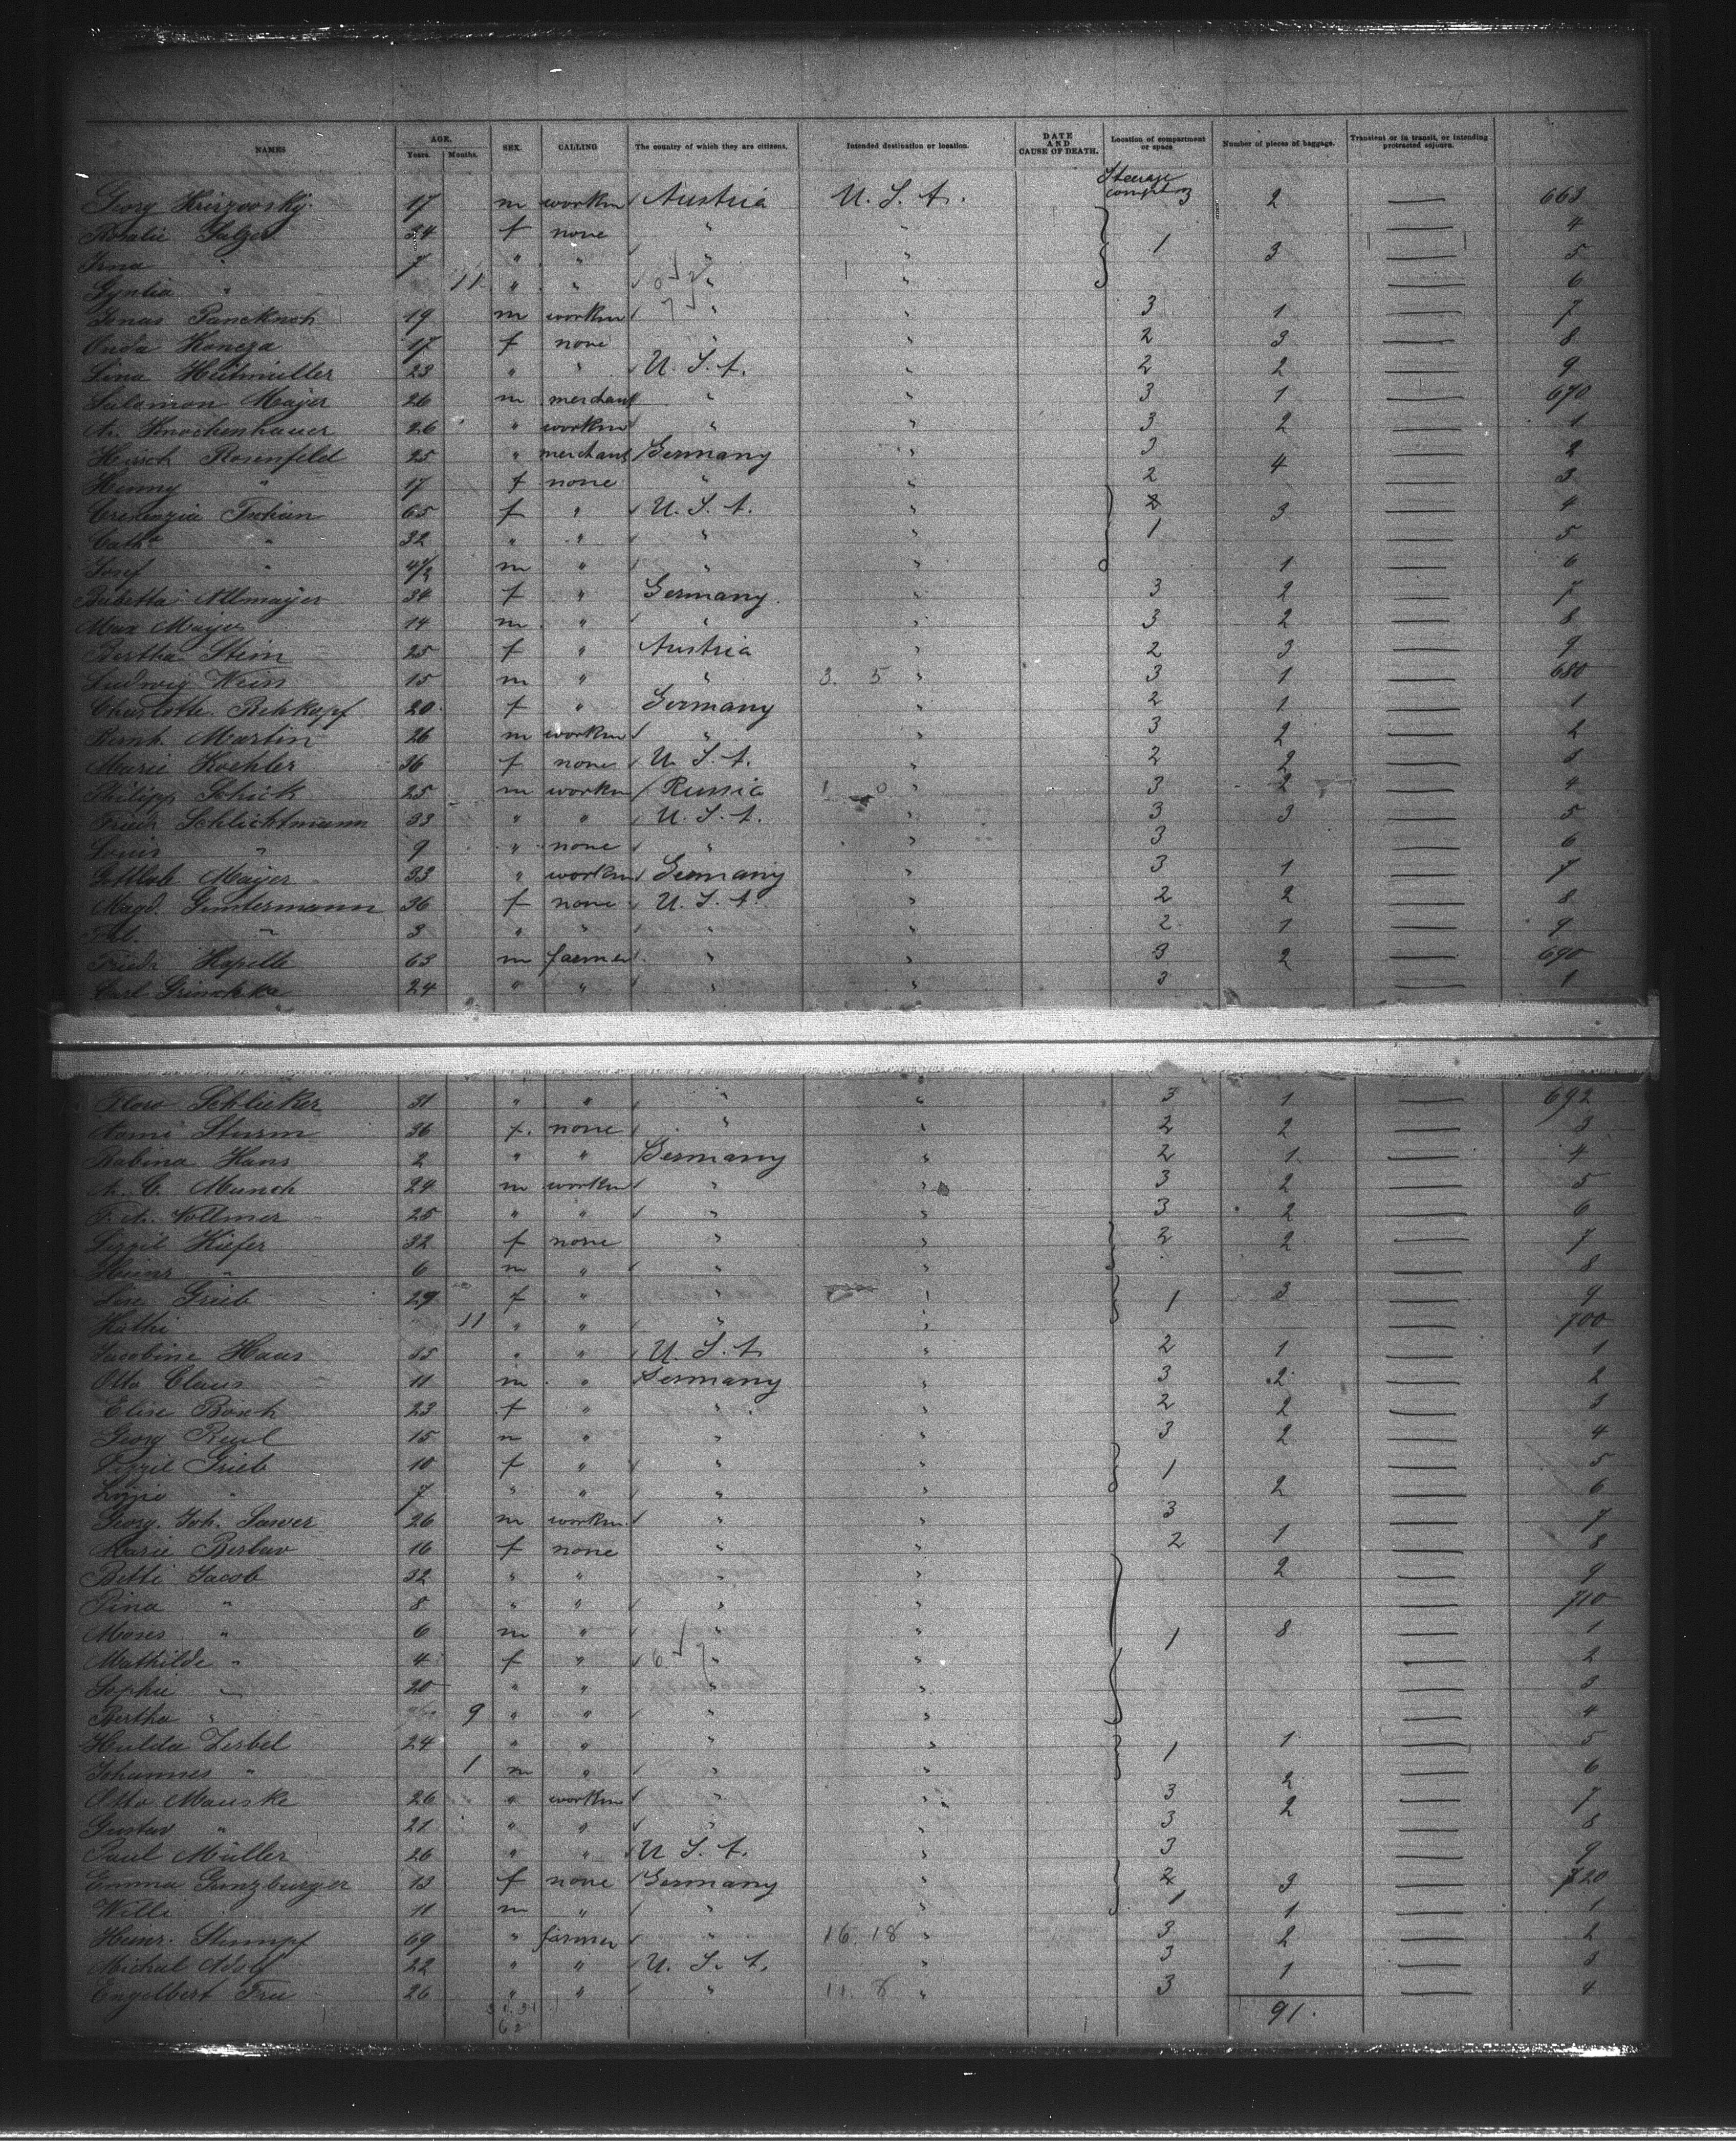 NAMES AGE. Years. Months. SEX. CALLING The country of which they are citizens. Intended destination or location. DATE AND CAUSE OF DEATH. Location of compartment or space Number of pieces of baggage. Transient or in transit, or intending protracted sojourn.
Steerage
Georg 17 m workm Austria U. S. A. compt 3 2 — 663
Rosalie Salzer 24 f none " " — 4
Irma " 7 " " " " 1 3 — 5
" 11 " " " " — 6
19 m workm " " 3 1 — 7
17 f none " " 2 3 — 8
Lina 23 " " U. S. A. " 2 2 — 9
Salamon Mayer 26 m merchant " " 3 1 — 670
A. Knochenhauer 26 " workm " " 3 2 — 1
Hirsch Rosenfeld 25 " merchant Germany " 3 — 2
Henny " 17 f none " " 2 4 — 3
65 f " U. S. A. " 2 3 — 4
Cath. " 32 " " " " 1 — 5
Josef " 4½ m " " " 1 — 6
Babetta Allmayer 34 f " Germany " 3 2 — 7
Max Mayer 14 m " " " 3 2 — 8
Bertha Stein 25 f " Austria " 2 3 — 9
Ludwig Weiss 15 m " " 3. 5 " 3 1 — 680
Charlotte Rehkopf 20 f " Germany " 2 1 — 1
Bernh. Martin 26 m workm " " 3 2 — 2
Marie Koehler 36 f none U. S. A. " 2 2 — 3
Philipp Schick 25 m workm Russia 1 0 " 3 2 — 4
Friedr Schlichtmann 33 " " U. S. A. " 3 3 — 5
Louis " 9 " none " " 3 — 6
Gottlob Mayer 33 " workm Germany " 3 1 — 7
Magd. Guntermann 36 f none U. S. A. " 2 2 — 8
" 3 " " " " 2 1 — 9
Friedr Kapelle 63 m farmer " " 3 2 — 690
Carl Grinchka 24 " " " " 3 — 1
Schlieker 31 " " " " 3 1 — 692
Sturm 36 f. none " " 2 2 — 3
Babina Hans 2 " " Germany " 2 1 — 4
A. C. Munch 24 m workm " " 3 2 — 5
Vollmer 25 " " " " 3 2 — 6
Lizzie Kiefer 32 f none " " 2 2 — 7
Heinr " 6 m " " " — 8
Lise Grieb 29 f " " " 1 3 — 9
Käthi 11 " " " " — 700
Jacobine Haas 35 " " U. S. A " 2 1 — 1
Otto Claus 11 m " Germany " 3 2 — 2
Elise Bosch 23 f " " " 2 2 — 3
Georg 15 m " " " 3 2 — 4
Lizzie Grieb 10 f " " " 1 — 5
" 7 " " " " 2 — 6
Georg. Joh. 26 m workm. " " 3 — 7
Marie 16 f none " " 2 1 — 8
Betti Jacob 32 " " " " 2 — 9
" 8 " " " " 710
Moses " 6 m " " " 1 8 — 1
Mathilde " 4 f " " " — 2
Sophie " 20 " " " " — 3
Bertha " 9 " " " " — 4
Hulda Zerbel 24 " " " " 1 1 — 5
Johannes " 1 m " " " 2 — 6
Otto Manske 26 " workm " " 3 2 — 7
Gustav " 21 " " " " 3 — 8
Paul Müller 26 " " U. S. A. " 3 — 9
Emma Gunzburger 13 f none Germany " 2 3 — 720
Willi 11 m " " " 1 1 — 1
Heinr. Stumpf 69 " farmer " 16. 18 " 3 2 — 2
Michael Adolf 22 " " U. S. A. " 3 1 — 3
Engelbert 26 " " " 11. 8 " 3 — 4
91.
62